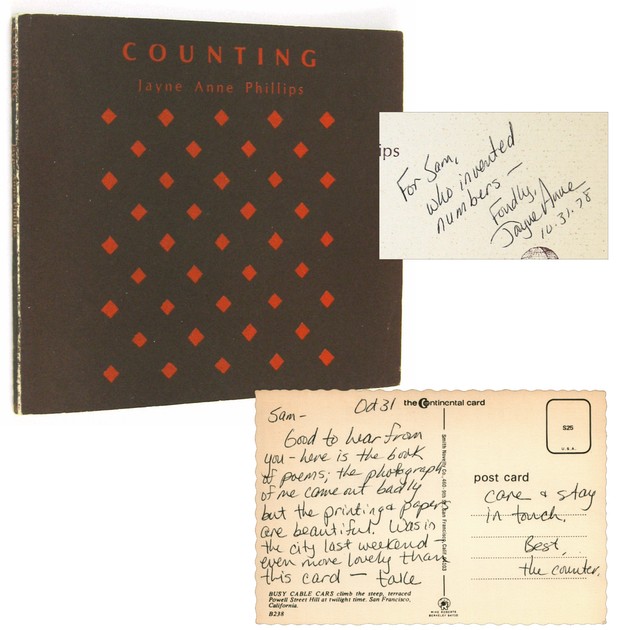 COUNTING
Jayne Anne Phillips
ips
For Sam,
who invented
numbers—
Fondly,
Jayne Anne
10.31.78
Sam- Oct 31
Good to hear from
you - here is the book
of poems; the photograph
of me came out badly
but the printing & paper
are beautiful. Was in
the city last weekend -
even more lovely than
this card — take
BUSY CABLE CARS climb the steep, terraced
Powell Street Hill at twilight time. San Francisco,
California.
B238
the Continental card
Smith Novelty Co., San Francisco, Calif.
S25
U.S.A.
post card
care & stay
in touch.
Best,
the counter.
MIKE ROBERTS
BERKELEY